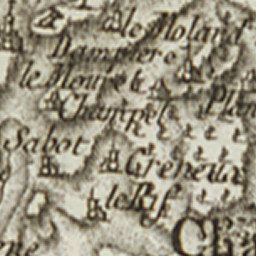 le Moland
Dampiere
le Mouret
Champel
Plen
Sabot
Greneux
le Rif
Cha
ne